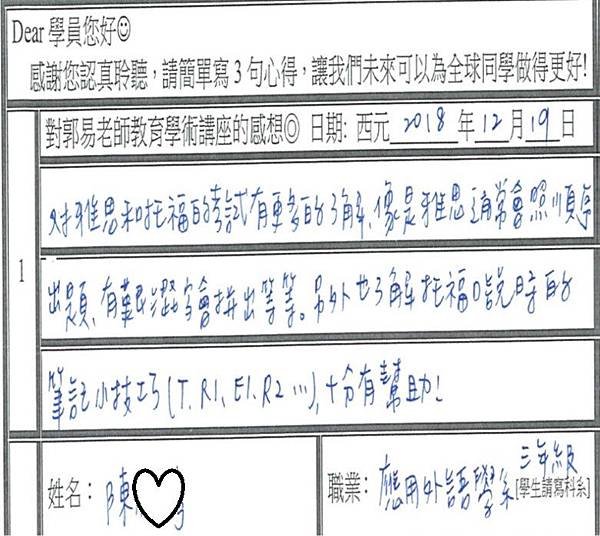 Dear 學員您好☺
感謝您認真聆聽，請簡單寫 3 句心得，讓我們未來可以為全球同學做得更好!
對郭易老師教育學術講座的感想◎ 日期: 西元 2018 年 12 月 19 日
1
对雅思和托福的考試有更多的了解、像是雅思通常會照順序
出題、有艱澀字會拼出等等。另外也了解托福口說時的
筆記小技巧(T. R1、E1. R2 …), 十分有幫助!
姓名： 陳
職業: 應用外語學系 三年級 [學生請寫科系]